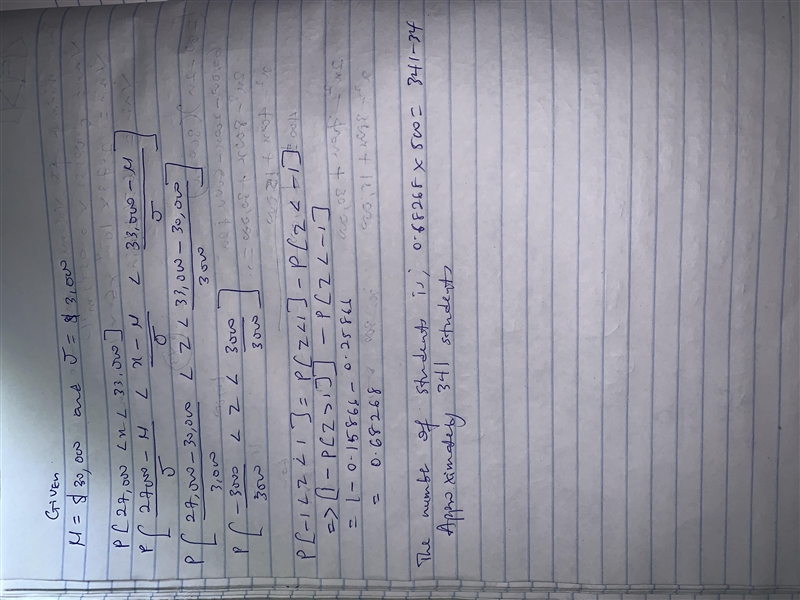 Given
μ = $ 30,000 and σ = $ 3,000
P[27,000 < x < 33,000]
P[27,000 - μ / σ < x - μ / σ < 33,000 - μ / σ]
P[27,000 - 30,000 / 3,000 < Z < 33,000 - 30,000 / 3000]
P[-3000 / 3000 < Z < 3000 / 3000]
P[-1 < Z < 1] = P[Z < 1] - P[Z < -1]
=> [1 - P[Z > 1]] - P[Z < -1]
= 1 - 0.15866 - 0.25866
= 0.68268
The number of students is; 0.68268 x 500 = 341.34
Approximately 341 students